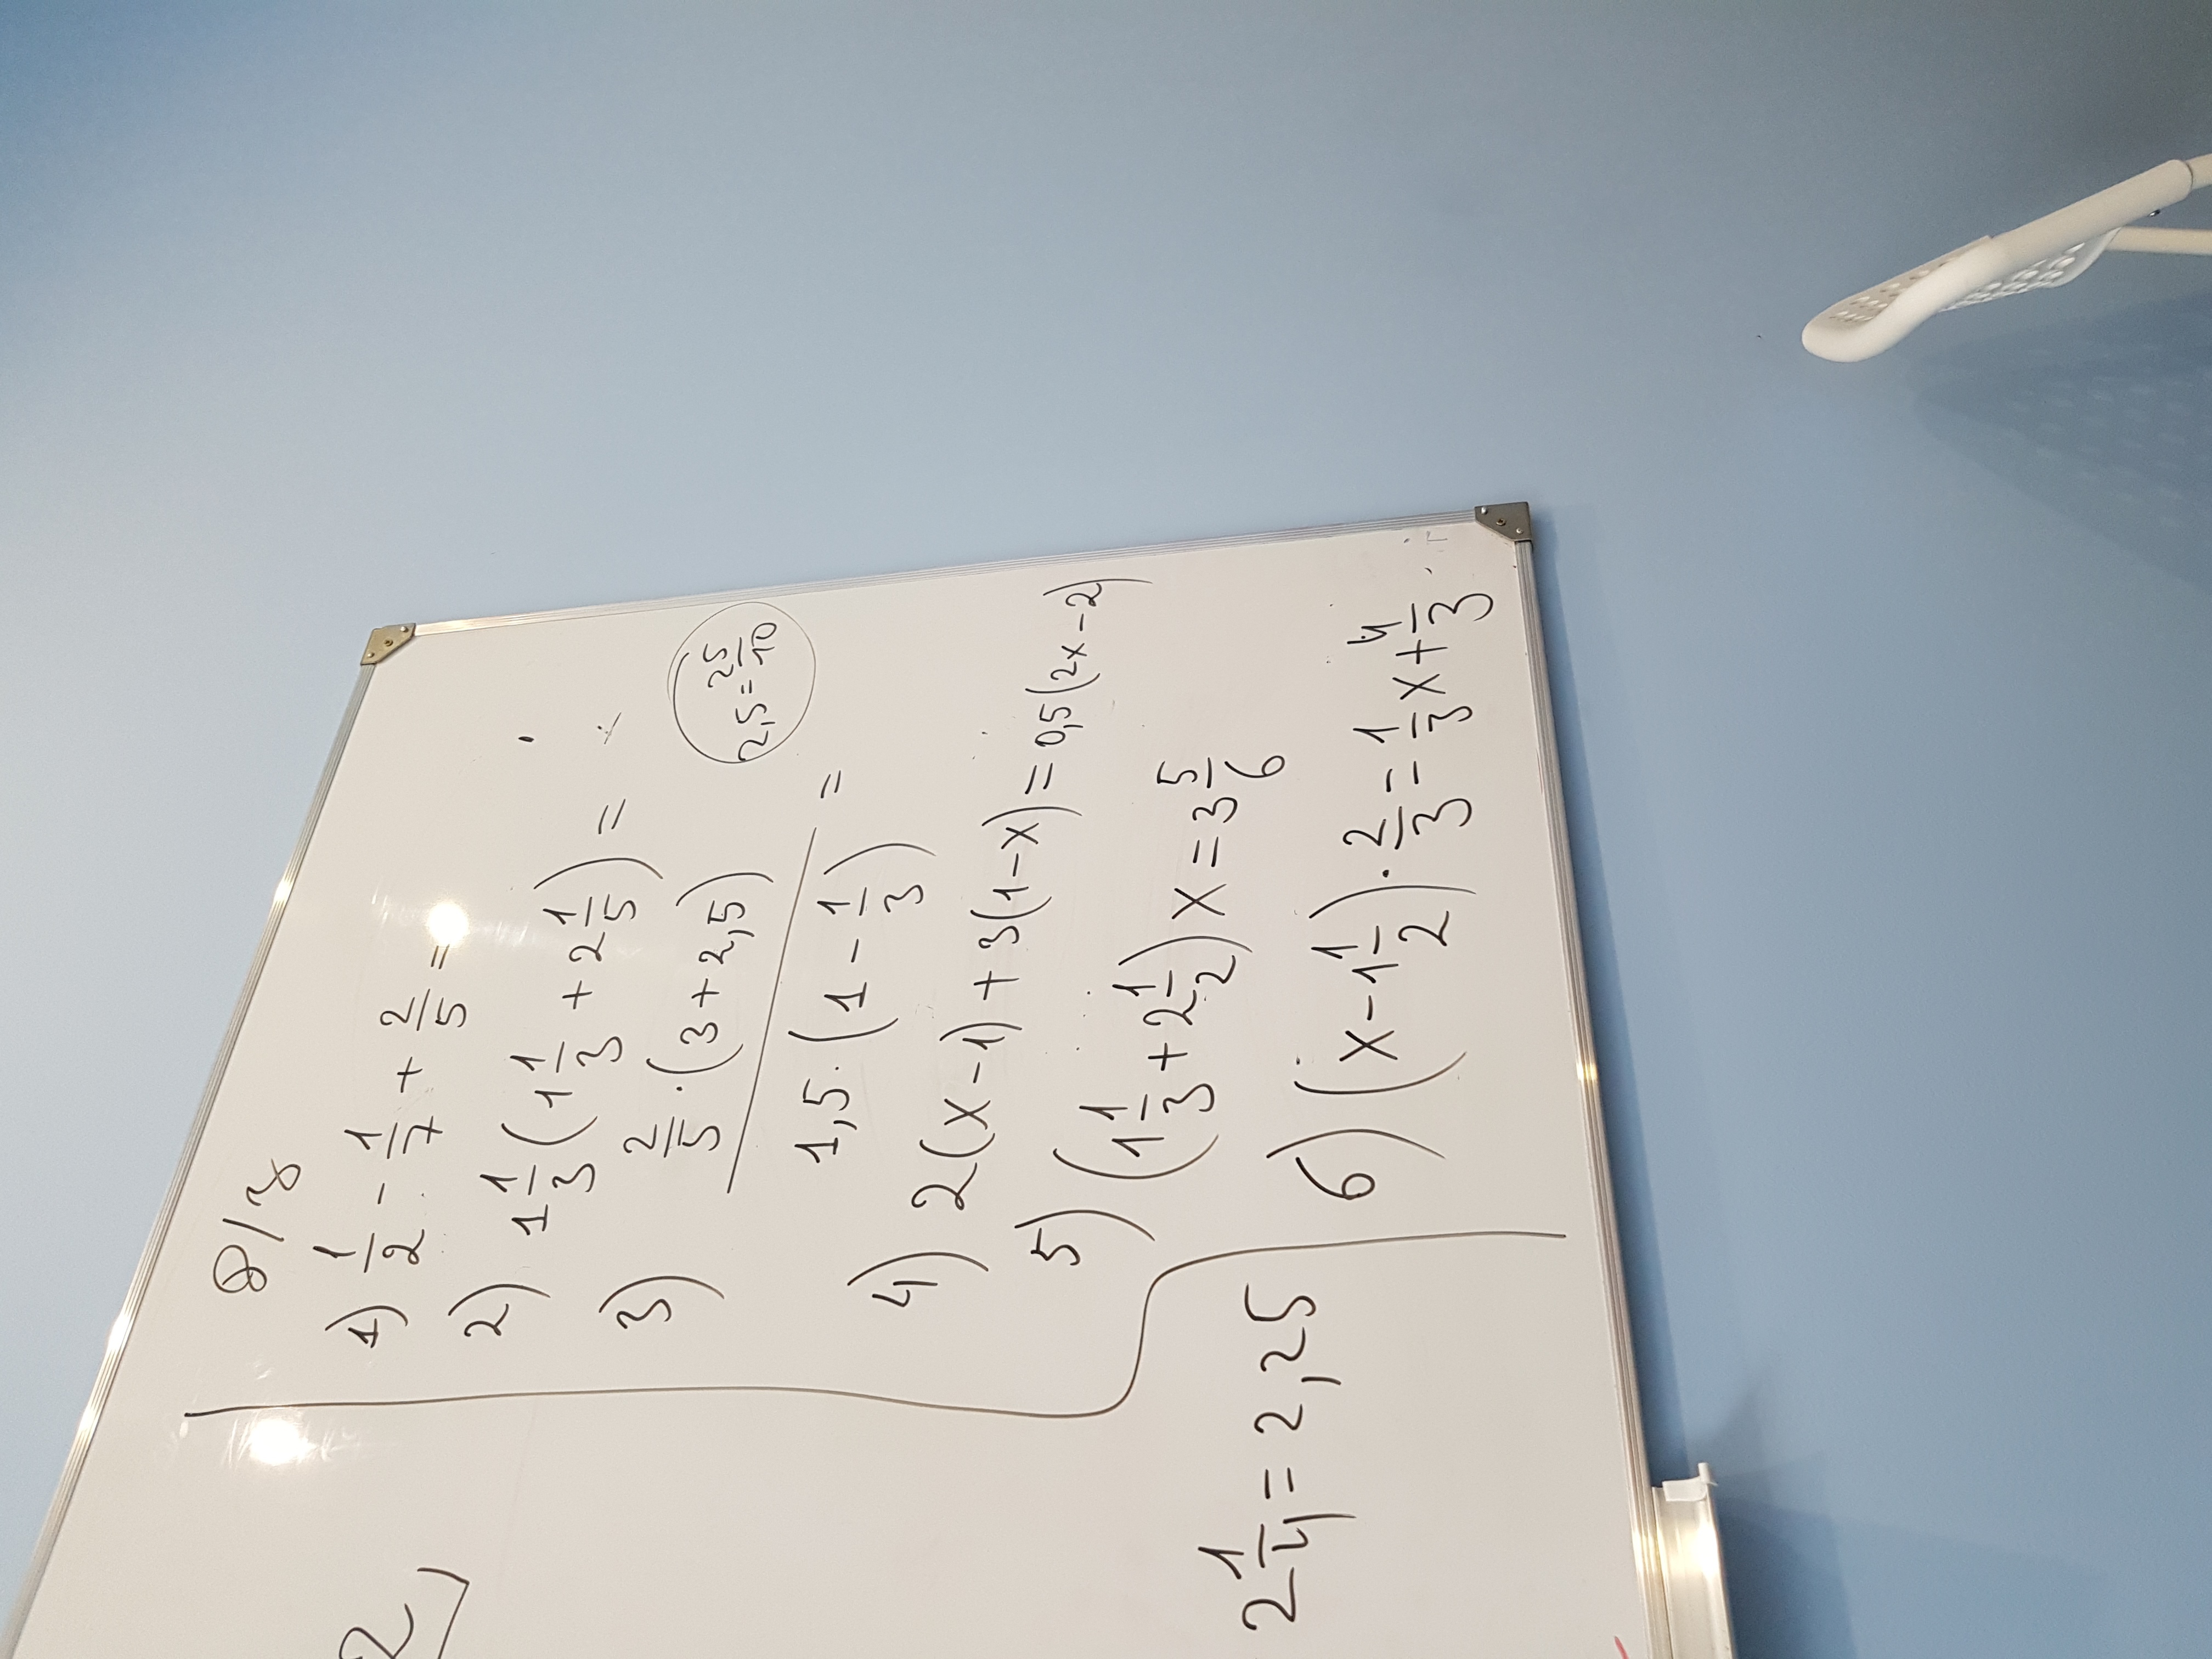 D/z
1) 1/2 - 1/7 + 2/5 =
2) 1 1/3 (1 1/3 + 2 1/5) =
3) 2/5 · (3 + 2,5)
1,5 · (1 - 1/3) =
2,5 = 25/10
4) 2(x - 1) + 3(1 - x) = 0,5(2x - 2)
5) (1 1/3 + 2 1/2) x = 3 5/6
6) (x - 1 1/2) · 2/3 = 1/3 x + 4/3
2 1/4 = 2,25